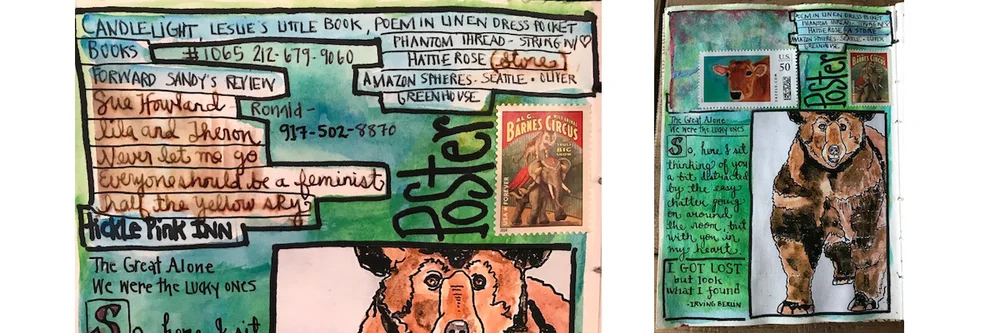 CANDLELIGHT, LESLIE'S LITTLE BOOK, POEM IN LINEN DRESS POCKET
BOOKS #1065 212-679-9060
PHANTOM THREAD - STRING IN
HATTIE ROSE (store)
FORWARD SANDY'S REVIEW
AMAZON SPHERES - SEATTLE - OLIVER
GREENHOUSE
Sue Howland
Ronald -
Lila and Theron
917-502-8870
Never let me go
Everyone should be a feminist
half the yellow sky
Tickle Pink INN
Poster
AL G.
BARNES CIRCUS
USA FOREVER
The Great Alone
We were the Lucky ones
So, here I sit
POEM IN LINEN DRESS POCKET
PHANTOM THREAD - STRING IN
HATTIE ROSE A STORE
AMAZON SPHERES - SEATTLE - OLIVER
GREENHOUSE
U.S.
50
Poster
BARNES CIRCUS
The Great Alone
We were the Lucky ones
So, here I sit
thinking of you
a bit distracted
by the easy
chatter going
on around
the room, but
with you in
my heart.
I GOT LOST
but look
what I found
-IRVING BERLIN